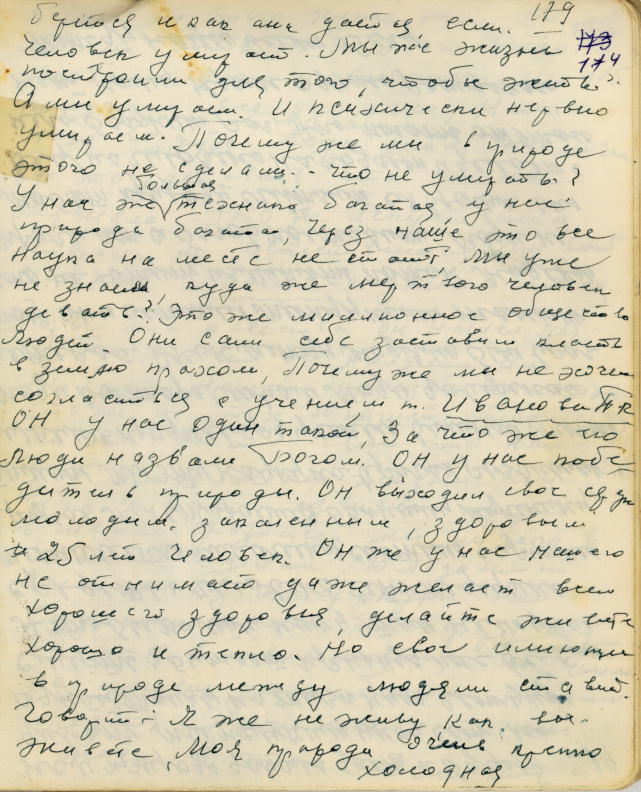 179
берется и как она дается, если
173
174
человек умирает. Мы же жизнь
построили для того, чтобы жить?
А мы умираем. И психически нервно
умираем. Почему же мы в природе
этого не сделали. - что не умирать?
большая
У нас же техника богатая у нас
природа богатая, через наше это все
наука на месте не стоит, Мы уже
не знаем, куда же мертвого человека
девать? Это же миллионное общество
людей. Они сами себе заставили класть
в землю прахом, Почему же мы не хочем
согласиться с учением т. Иванова ПК
ОН у нас один такой, За что же его
люди назвали Богом. ОН у нас побе
дитель природы. Он выходил свое сердце
молодым. закаленным, здоровым
25 лет человек. ОН же у нас нашего
не отнимает даже желает всем
хорошего здоровья, делайте живите
хорошо и тепло. Но свое имеющее
в природе между людями ставит.
Говорит - Я же не живу как вы
живете, Моя природа очень крепко
холодная